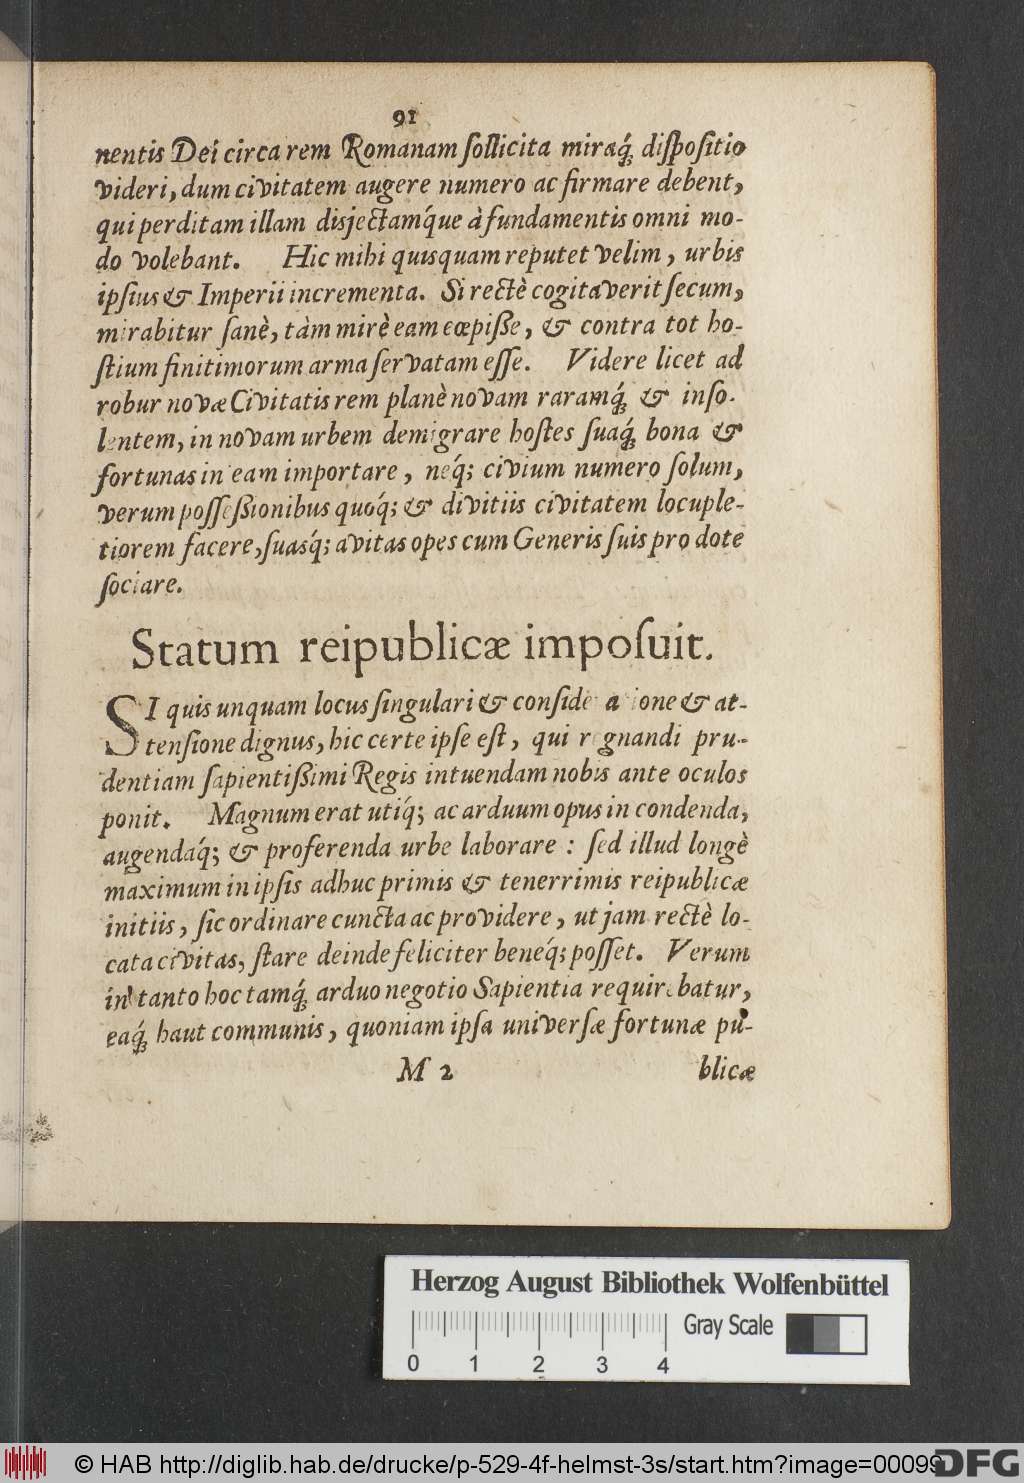 91
nentis Dei circa rem Romanam ſollicita miraq́ꝫ diſpoſitio
videri, dum civitatem augere numero ac firmare debent,
qui perditam illam disjectamq́ue à fundamentis omni mo-
do volebant. Hic mihi quisquam reputet velim, urbis
ipſius & Imperii incrementa. Si rectè cogitaverit ſecum,
mirabitur ſanè, tàm mirè eam cœpiſſe, & contra tot ho-
ſtium finitimorum arma ſervatam eſſe. Videre licet ad
robur novæ Civitatis rem planè novam raramq́ꝫ & inſo-
lentem, in novam urbem demigrare hoſtes ſuaq́ꝫ bona &
fortunas in eam importare, neq́; civium numero ſolum,
verum poſſeßionibus quoq́; & divitiis civitatem locuple-
tiorem facere, ſuasq́; avitas opes cum Generis ſuis pro dote
ſociare.
Statum reipublicæ impoſuit.
SI quis unquam locus ſingulari & conſideratione & at-
tenſione dignus, hic certe ipſe eſt, qui regnandi pru-
dentiam ſapientißimi Regis intuendam nobis ante oculos
ponit. Magnum erat utiq́; ac arduum opus in condenda,
augendaq́; & proferenda urbe laborare: ſed illud longè
maximum in ipſis adhuc primis & tenerrimis reipublicæ
initiis, ſic ordinare cuncta ac providere, ut jam rectè lo-
cata civitas, ſtare deinde feliciter beneq́; poſſet. Verum
in tanto hoc tamq́ꝫ arduo negotio Sapientia requirebatur,
eaq́ꝫ haut communis, quoniam ipſa univerſæ fortunæ pu-
M 2 blicæ
Herzog August Bibliothek Wolfenbüttel
Gray Scale
0 1 2 3 4
© HAB http://diglib.hab.de/drucke/p-529-4f-helmst-3s/start.htm?image=00099
DFG